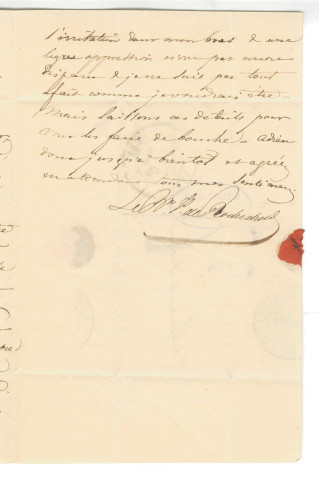 l'irritation dans mon bras & une
legre oppression n'ont pas encore
disparu & je ne suis pas tout
à fait comme je voudrais être.
Mais laissons ces détails pour
vous les faire de bouche - adieu
donc jusqu'à bientot et agréez
en attendant tous mes sentimens
Le Bn. de